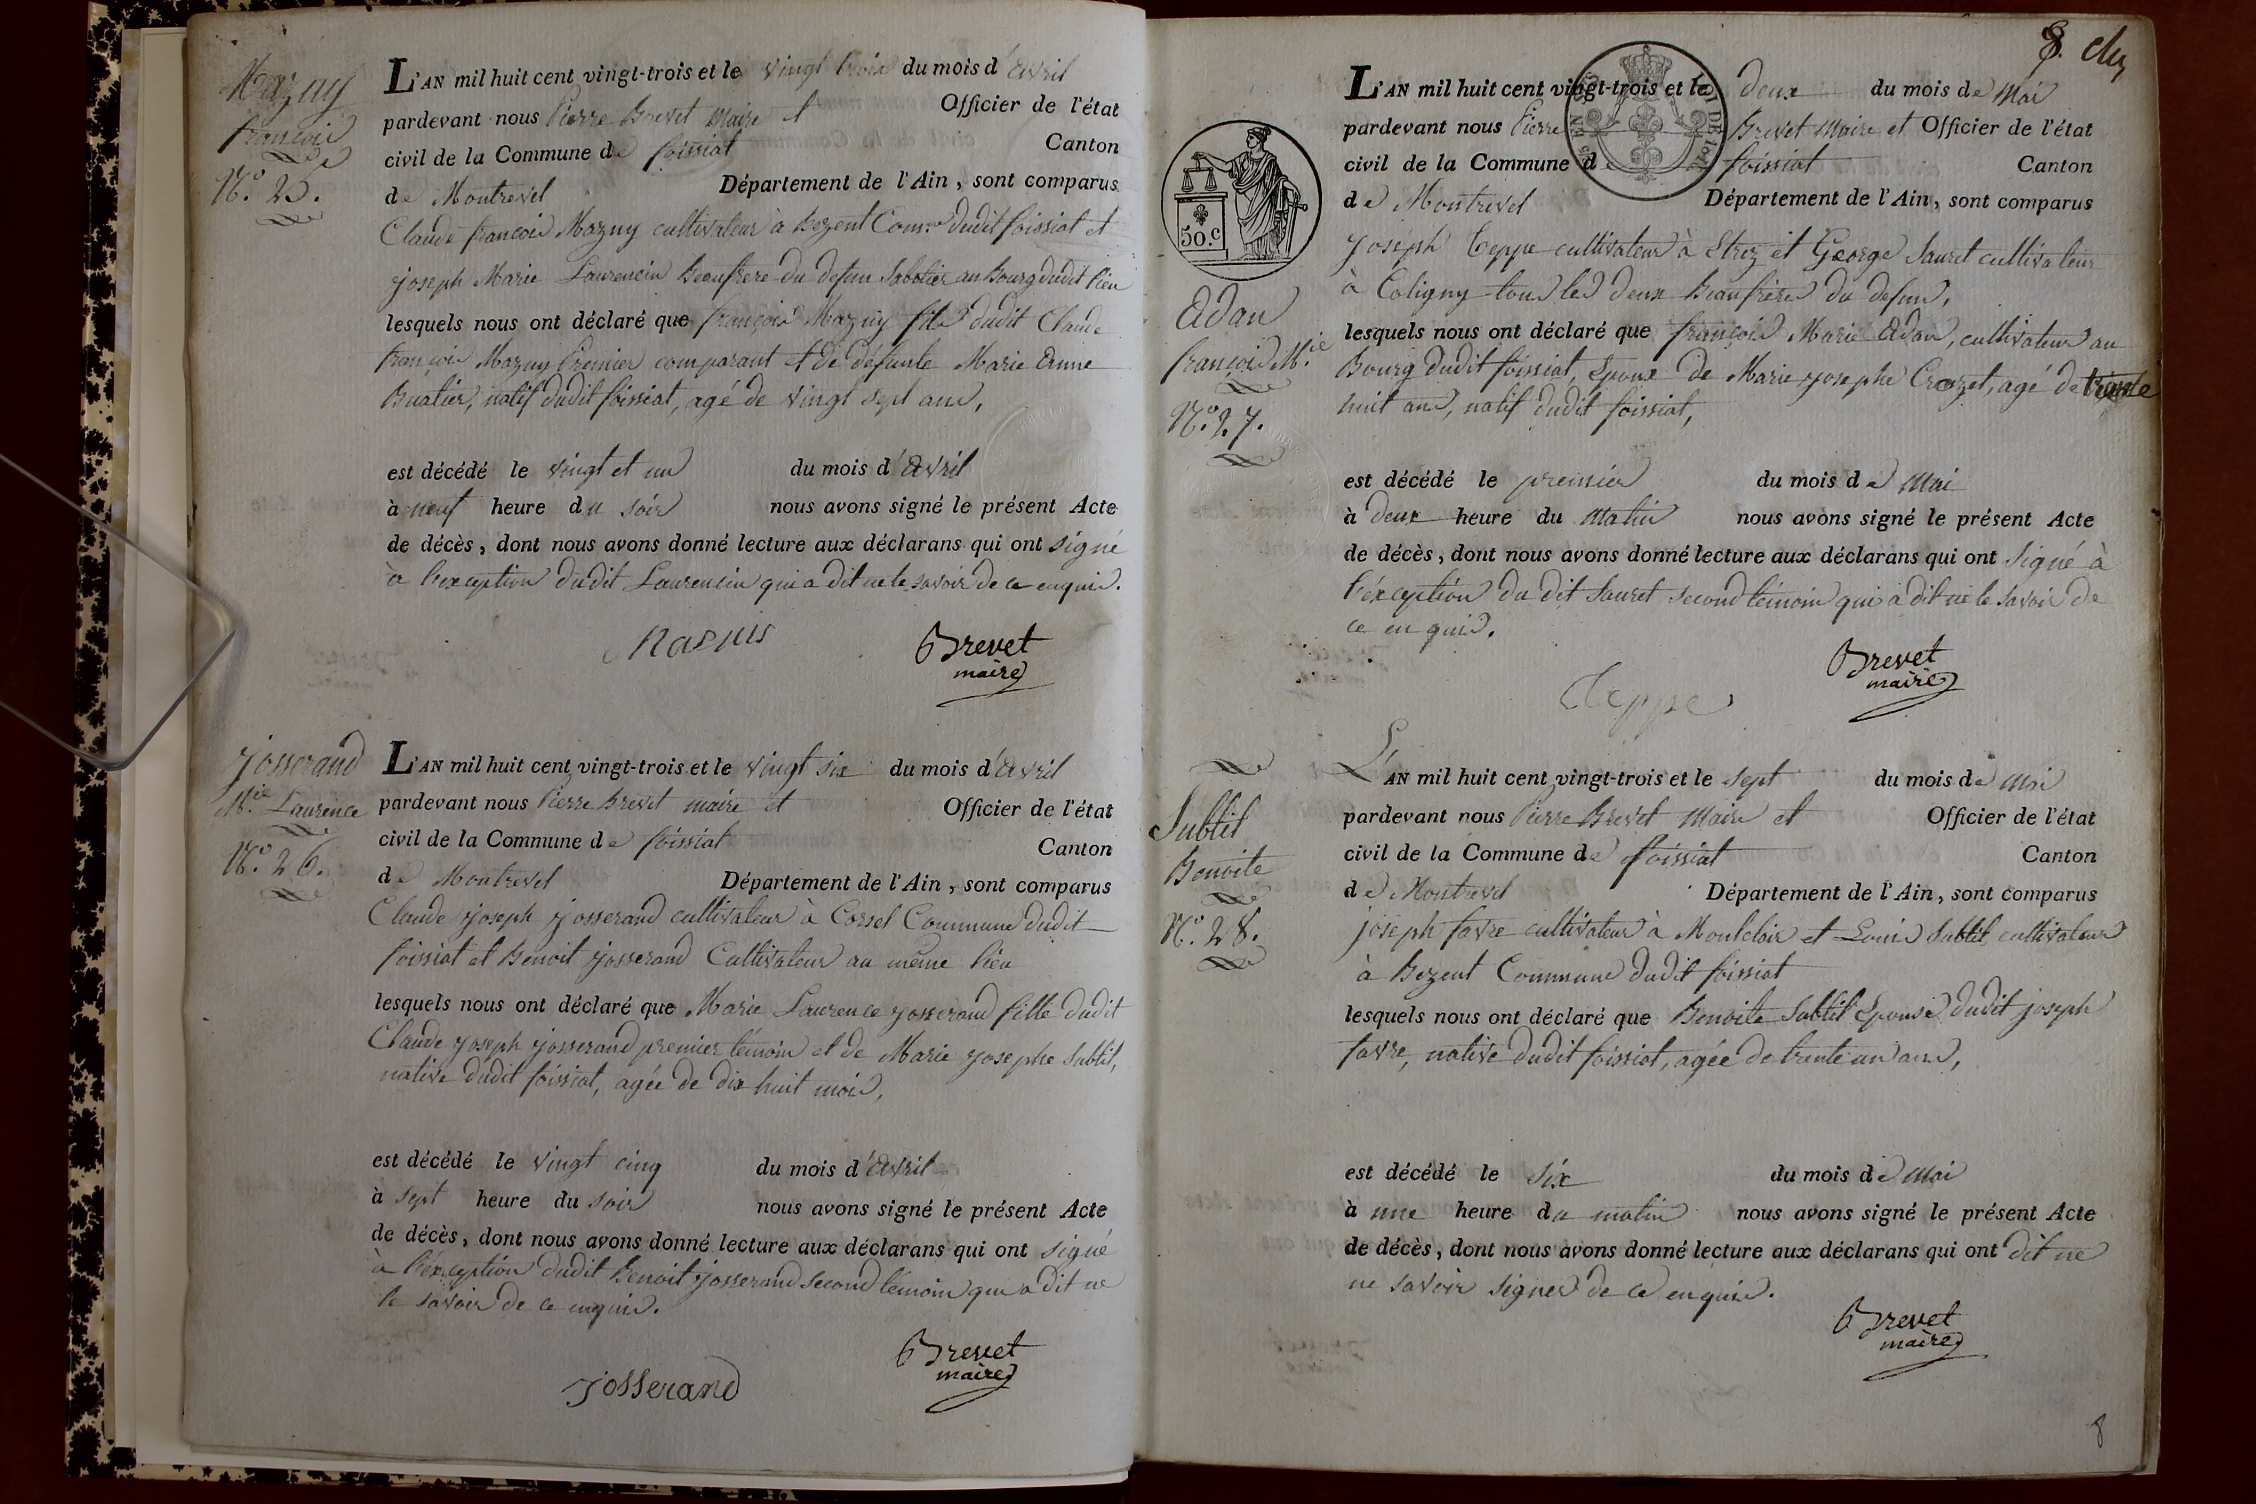 Mazuy
françois
N.º 25.
L'AN mil huit cent vingt-trois et le vingt trois du mois d'Avril
pardevant nous Pierre Brevet maire et Officier de l'état
civil de la Commune de foissiat Canton
de Montrevel Département de l'Ain, sont comparus
Claude françois Mazuy cultivateur à Bezent Com.ne dudit foissiat et
joseph Marie Laurencin Beaufrere du defun Sabotier au Bourg dudit lieu
lesquels nous ont déclaré que françois Mazuy fils dudit Claude
françois Mazuy Premier comparant et de defunte Marie Anne
Buatier, natif dudit foissiat, agé de vingt sept ans,
est décédé le vingt et un du mois d'Avril
à neuf heure du soir nous avons signé le présent Acte
de décès, dont nous avons donné lecture aux déclarans qui ont signé
à l'exception dudit Laurencin qui a dit ne le savoir de ce enquis.
Brevet
maire
josserand
M.ie Laurence
N.º 26.
L'AN mil huit cent vingt-trois et le vingt six du mois d'Avril
pardevant nous Pierre Brevet maire et Officier de l'état
civil de la Commune de foissiat Canton
de Montrevel Département de l'Ain, sont comparus
Claude joseph josserand cultivateur à Corsel Commune dudit
foissiat et Benoit josserand Cultivateur au même lieu
lesquels nous ont déclaré que Marie Laurence josserand fille dudit
Claude joseph josserand premier témoin et de Marie josephe Subtil,
native dudit foissiat, agée de dix huit mois,
est décédé le vingt cinq du mois d'Avril
à sept heure du soir nous avons signé le présent Acte
de décès, dont nous avons donné lecture aux déclarans qui ont signé
à l'éxception dudit Benoit josserand second témoin qui a dit ne
le savoir de ce enquis.
Brevet
maire
josserand
8.
50.c
Adan
françois M.ie
N.º 27.
L'AN mil huit cent vingt-trois et le deux du mois de Mai
pardevant nous Pierre Brevet Maire et Officier de l'état
civil de la Commune de foissiat Canton
de Montrevel Département de l'Ain, sont comparus
joseph Teppe cultivateur à Etrez et George Sauret cultivateur
à Coligny tous les deux Beaufrère du defun,
lesquels nous ont déclaré que françois Marie Adan, cultivateur au
Bourg dudit foissiat, Epoux de Marie josephe Crozet, agé de trente
huit ans, natif dudit foissiat,
est décédé le premier du mois de Mai
à deux heure du Matin nous avons signé le présent Acte
de décès, dont nous avons donné lecture aux déclarans qui ont Signé à
l'éxception du dit Sauret second témoin qui a dit ne le savoir de
ce enquis.
Brevet
maire
Teppe
Subtil
Benoite
N.º 28.
L'AN mil huit cent vingt-trois et le sept du mois de Mai
pardevant nous Pierre Brevet Maire et Officier de l'état
civil de la Commune de foissiat Canton
de Montrevel Département de l'Ain, sont comparus
joseph favre cultivateur à Montcloir et Louis Subtil cultivateur
à Bezent Commune dudit foissiat
lesquels nous ont déclaré que Benoite Subtil Epouse dudit joseph
favre, native dudit foissiat, agée de trente un ans,
est décédé le six du mois de Mai
à une heure du matin nous avons signé le présent Acte
de décès, dont nous avons donné lecture aux déclarans qui ont dit ne
ne savoir signer de ce enquis.
Brevet
maire
8